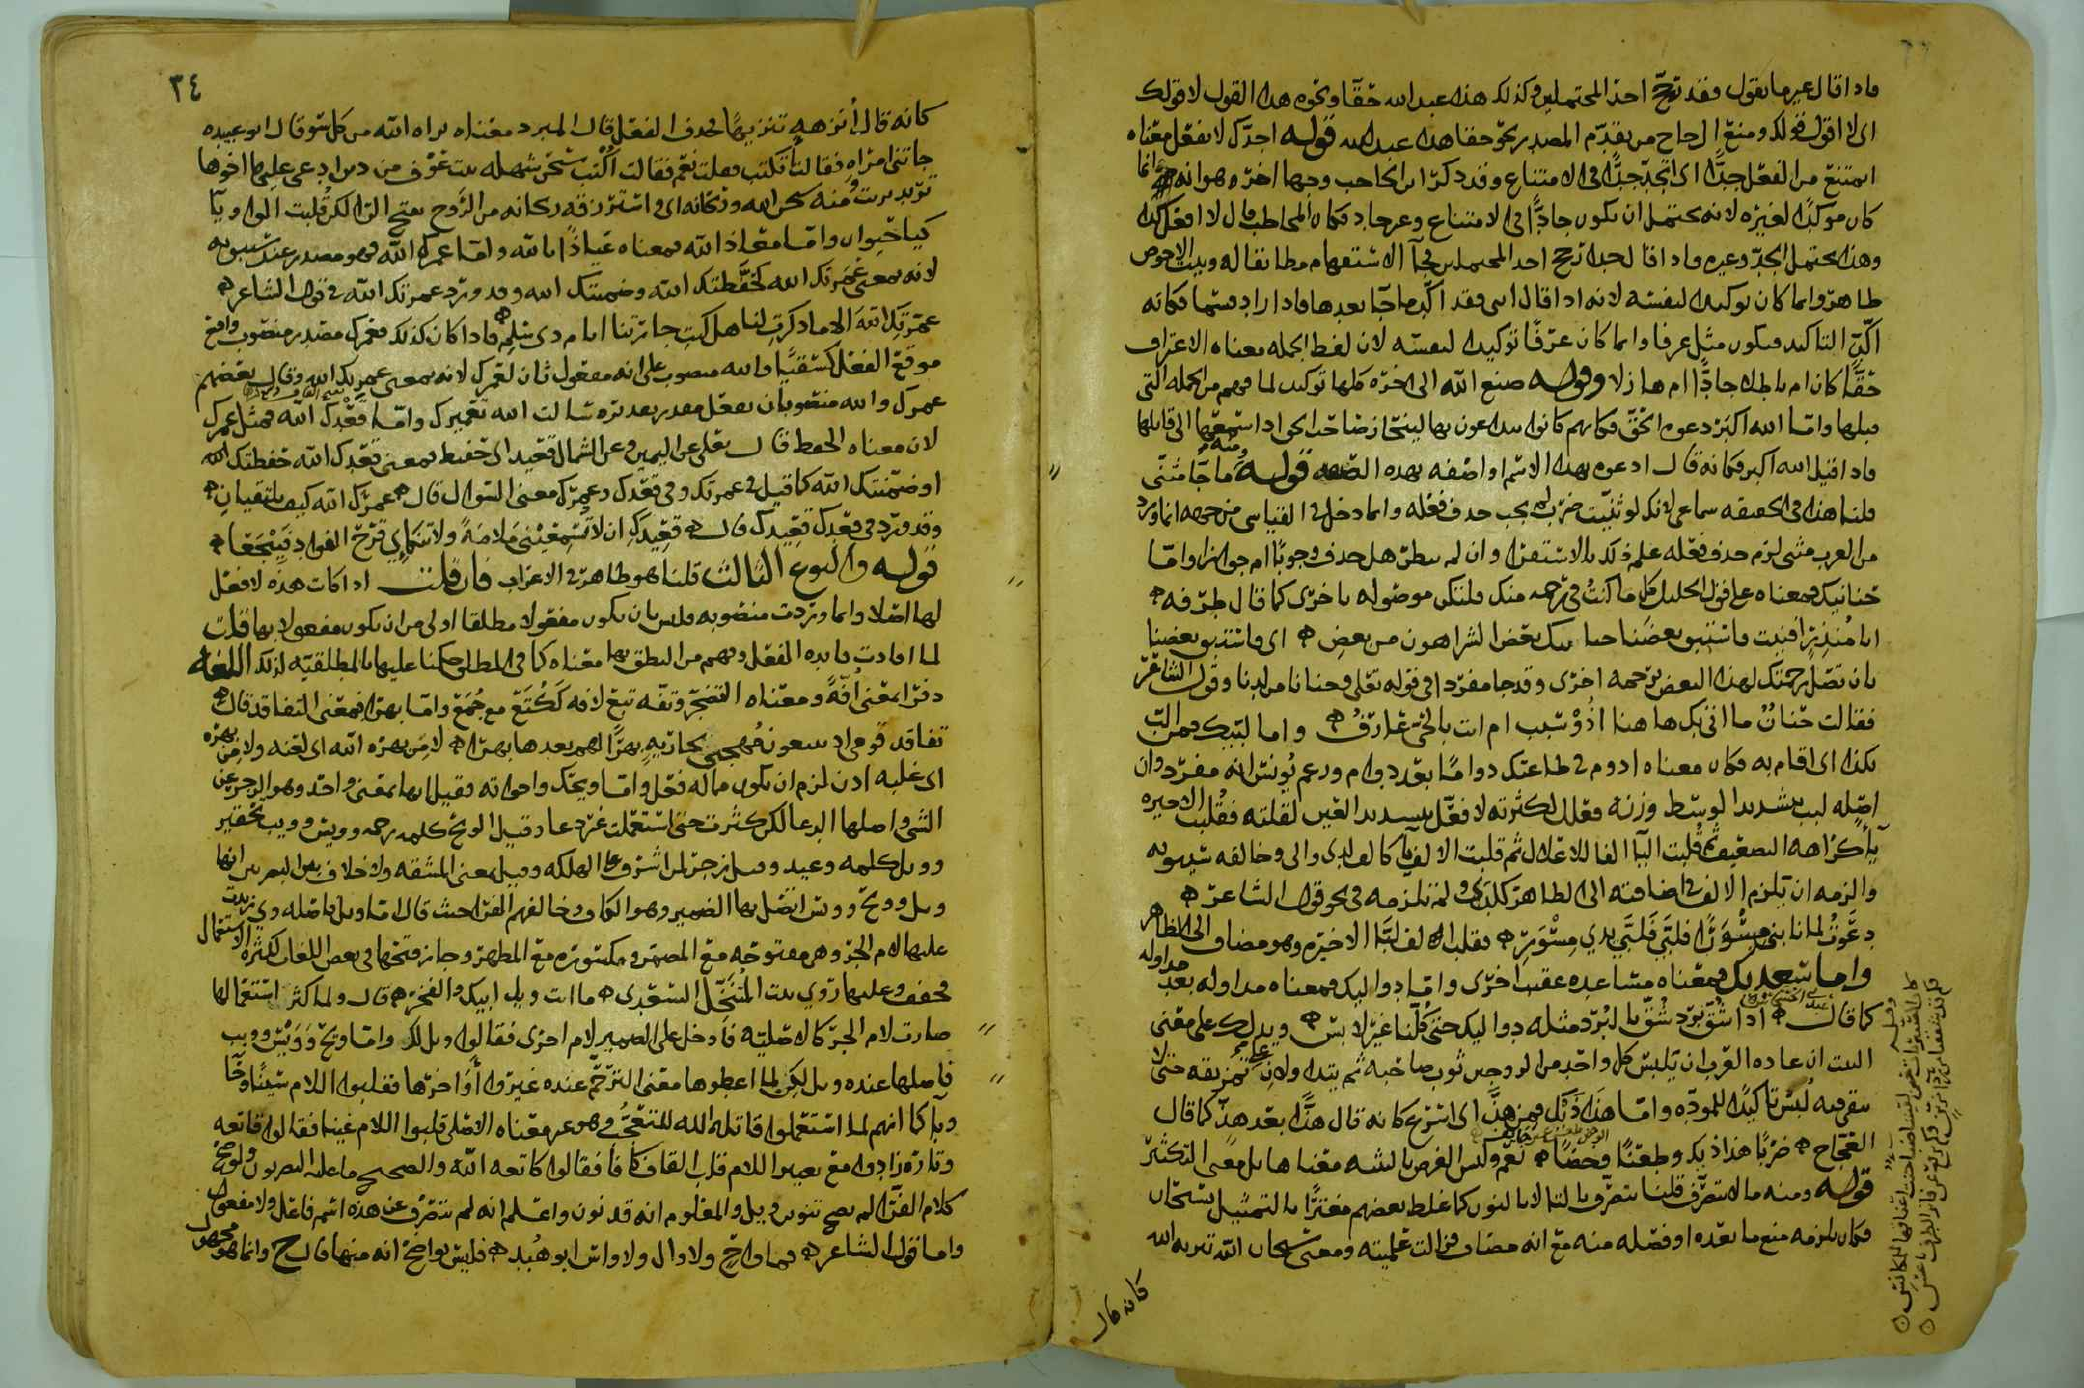 فاذا قال غير ما يقول فقد ترجح احد المحتملين وكذلك هذا عبد الله حقا ونحوه هذا القول لا قولك
اى لا اقول قولك ومنع الزجاج من تقدم المصدر نحو حقا هذا عبد الله قوله اجدك لا تفعل معناه
امتنع من الفعل جدا اى اتجد جدا فى الامتناع وقد ذكر ابن الحاجب وجها اخر وهو انه انما
كان موكدا لغيره لانه يحتمل ان يكون جادا فى الامتناع وغير جاد فكان المخاطب قال لا افعل كذا
وهذا يحتمل الجد وغيره فاذا قال جدا ترجح احد المحتملين فجآ الاستفهام مطابقا له وبيت الاحوص
ظاهر وانما كان توكيدا لنفسه لانه اذا قال انى فقد اكد ما جآ بعدها فاذا اراد قسما فكانه
اكد التاكيد فيكون مثل عرفا وانما كان عرفا توكيدا لنفسه لان لفظ الجمله معناه الاعتراف
حقا كان ام باطلا جادا ام هازلا وقوله صنع الله الى اخره كلها توكيد لما فهم من الجمله التى
قبلها واما الله اكبر دعوه الحق فكانهم كانوا يتداعون بها لينحاز صاحب الحق اذا استمعها الى قايلها
فاذا قيل الله اكبر فكانه قال ادعوه بهذا الاسم او اصفه بهذه الصفه قوله ومنه ما جآ مثنى
قلنا هذا فى الحقيقه سماعى لانك لو ثنيت ضربا لم يجب حذف فعله وانما دخل فى القياسى من جهه انما ورد
من العرب مثنى لزم حذف فعله علم ذلك بالاستقرا وان لم ينظر هل حذف وجوبا ام جوازا واما
حنانيك فمعناه على قول الخليل كلما كنت فى رحمه منك فلتكن موصوله باخرى كما قال طرفه
ابا منذر افنيت فاستبق بعضنا حنانيك بعض الشر اهون من بعض اى فاستبق بعضنا
بان تصل رحمتك لهذا البعض برحمه اخرى وقد جا مفردا فى قوله تعلى وحنانا من لدنا وقول الشاعر
فقالت حنان ما اتى بك هاهنا اذو نسب ام انت بالحى عارف واما لبيك فمن الب
بكذا اى اقام به فكان معناه ادوم فى طاعتك دواما بعد دوام وزعم يونس انه مفرد وان
اصله لبب بتشديد الوسط وزنه فعلل لكثرته لا فعّل بتشديد العين لقلته فقلبت الاخيره
يآ كراهه التضعيف ثم قلبت اليآ الفا للاعلال ثم قلبت الالف يآ كالف لدى والى وخالفه سيبويه
والزمه ان تلزم الالف فى اضافته الى الظاهر كلدى ولم تلزمه فى نحو قول الشاعر
دعوت لما نابنى مسورا فلبى فلبى يدى مسور فقلب الالف يآ الاخيره وهو مضاف الى الظاهر
واما سعديك فمعناه مساعده عقيب اخرى واما دواليك فمعناه مداوله بعد مداوله
كما قال اذا شق برد شق بالبرد مثله دواليك حتى كلنا غير لابس ويدلك على معنى
البيت ان عاده العرب ان يلبس كل واحد من الزوجين ثوب صاحبه ثم يتداولان على تمزيقه حتى لا
يبقى فيه لبس تاكيدا للموده واما هذاذيك فمن هذ اى اسرع كانه قال هذا بعد هذ كما قال
العجاج ضربا هذاذيك وطعنا وخضا نعم وليس الغرض بالتثنيه معناها بل معنى التكثير
قوله ومنه ما لا يتصرف قلنا يتصرف بالتا لا بالنون كما غلط بعضهم مغترا بالتمثيل بسبحان
فكان يلزمه منع ما بعده او فصله منه مع انه مضاف فزالت علميته ومعنى سبحان الله تنزيه الله
كانه قال
٣٤
كانه قال أنزهه تنزيها فحذف الفعل قال المبرد معناه براه الله من كل سو قال ابو عبيده
جاتنى امراه فقالت أتكتب فقلت نعم فقالت اكتب سبحن سهله بنت عوف من دين ادعى على اخوها
تريد بريت منه سبحن الله وريحانه اى واسترزقه ريحانه من الروح بفتح الرا لكن قلبت الواو يآ
كياخيوان واما معاذ الله فمعناه عياذا بالله واما عمرك الله فهو مصدر عند سيبويه
لانه بمعنى عمرتك الله كحفظتك الله وضمنتك الله وقد ورد عمرتك الله فى قول الشاعر
عمرتك الله الا ما ذكرت لنا هل كنت جارتنا ايام ذى سلم فاذا كان كذلك فعمرك مصدر منصوب واقع
موقع الفعل كسقيا والله منصوب على انه مفعول ثان لعمرك لانه بمعنى عمرتك الله وقال بعضهم
عمرك والله منصوبان بفعل مقدر تقديره سالت الله تعميرك واما قعدك الله فمثل عمرك
لان معناه الحفظ قال تعلى عن اليمين وعن الشمال قعيد اى حفيظ فمعنى قعدك الله حفظتك الله
او ضمنتك الله كما قيل فى عمرتك وفى قعدك وعمرك معنى السوال قال عمرك الله كيف يلتقيان
وقد ورد فى قعدك قعيدك قال قعيدك ان لا تسمعينى ملامة ولا تنكاى قرح الفواد فييجعا
قوله والنوع الثالث قلنا هو ظاهر فى الاعراب فان قلت اذا كانت هذه لا فعل
لها اصلا وانما وردت منصوبه فليس بان يكون مفعولا مطلقا اولى من ان يكون مفعولا بها قلت
لما افادت فايده الفعل وفهم من النطق بها معناه كما فى المطلق حكمنا عليها بالمطلقيه لذلك اللغه
دفرا بمعنى أفه ومعناه التضجر وتفه تبع لافه كبكتع مع جمع واما بهرا فبمعنى التفاقد قال
تفاقد قومى اذ يبيعون مهجتى بجاريه بهرا لهم بعدها بهرا لا من بهره الله اى لعنه ولا من بهره
اى غلبه اذن لزم ان يكون مما له فعل واما ويحك واخواته فقيل انها بمعنى واحد وهو الزجر عن
الشى واصلها الدعا لكن كثرت حتى استعملت غير دعا وقيل الويح كلمه رحمه وويس وويب تحقير
وويل كلمه وعيد وقيل زجر لمن اشرف على الهلكه وقيل بمعنى المشقه ولا خلاف بين البصريين انها
ويل وويح وويس اتصل بها الضمير وهو الكاف وخالفهم الفرا حيث قال اما ويل فاصله وى زيدت
عليها لام الجر وهى مفتوحه مع المضمر ومكسوره مع المظهر وجاز فتحها فى بعض اللغات لكثره الاستعمال
فخفف وعليها روى بيت المنخل السعدى ما انت ويل ابيك والفخر قال ولما كثر استعمالها
صارت لام الجر كالاصليه فادخل على الضمير لام اخرى فقالوا ويل لك واما ويح وويس وويب
فاصلها عنده ويل لكن لما اعطوها معنى الترحم عنده غيروا اواخرها فقلبوا اللام سينا وحآ
وبآ كما انهم لما استعملوا قاتله الله للتعجب وهو غير معناه الاصلى قلبوا اللام عينا فقالوا قاتعه
وتاره زادوا مع تغيير اللام قلب القاف كافا فقالوا كاتعه الله والصحيح ما عليه البصريون ولو صح
كلام الفرا لم يصح تنوين ويل والمعلوم انه قد نون واعلم انه لم يتصرف عن هذه اسم فاعل ولا مفعول
واما قول الشاعر فما واح ولا وال ولا واس ابو هند فليس بواضح انه منها قال ح وانما هو مجهول